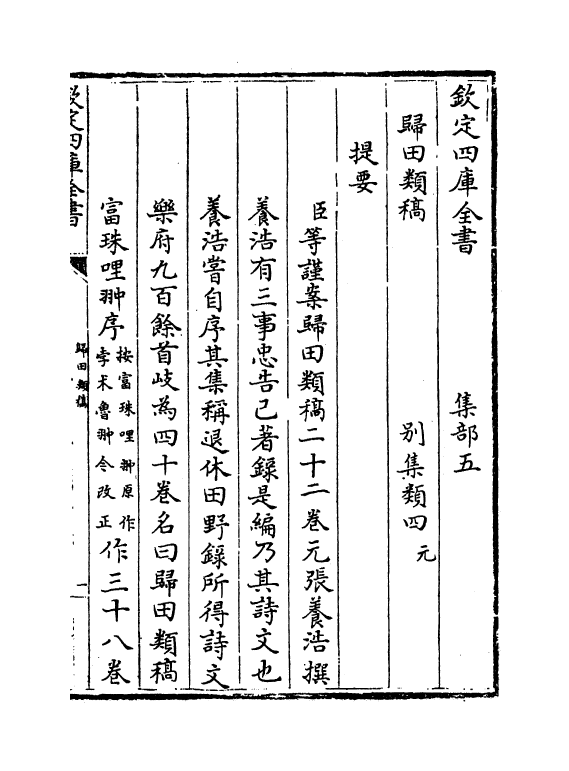 欽定四庫全書　集部五
歸田類稿　別集類四 元
提要
臣等謹案歸田類稿二十二卷元張養浩撰
養浩有三事忠告已著錄是編乃其詩文也
養浩嘗自序其集稱退休田野錄所得詩文
樂府九百餘首岐為四十卷名曰歸田類稿
富珠哩翀序 按富珠哩翀原作 孛术魯翀今改正 作三十八卷
欽定四庫全書
歸田類稿